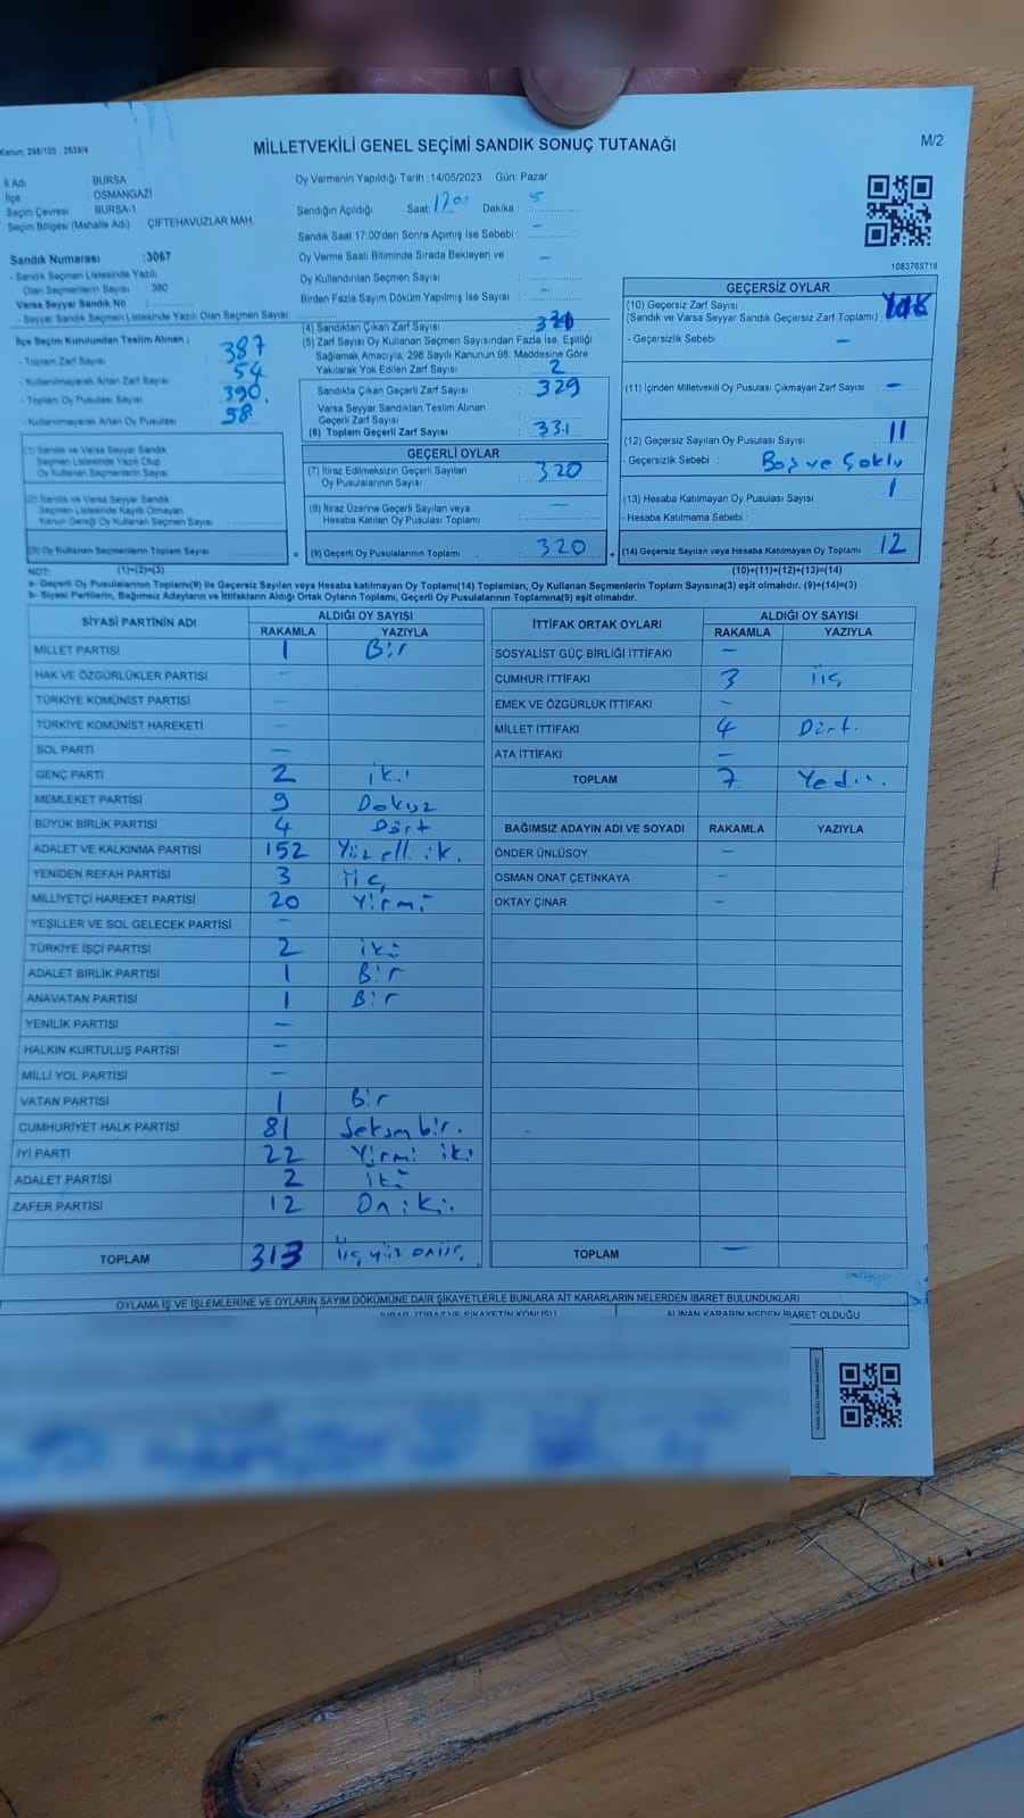 MİLLETVEKİLİ GENEL SEÇİMİ SANDIK SONUÇ TUTANAĞI
M/2
İl Adı BURSA
İlçe OSMANGAZİ
Seçim Çevresi BURSA-1
Seçim Bölgesi (Mahalle Adı) ÇİFTEHAVUZLAR MAH.
Sandık Numarası :3067
- Sandık Seçmen Listesinde Yazılı
Olan Seçmenlerin Sayısı : 380
Varsa Seyyar Sandık No
- Seyyar Sandık Seçmen Listesinde Yazılı Olan Seçmen Sayısı
İlçe Seçim Kurulundan Teslim Alınan ;
- Toplam Zarf Sayısı 387
- Kullanılmayarak Artan Zarf Sayısı 54
- Toplam Oy Pusulası Sayısı 390
- Kullanılmayarak Artan Oy Pusulası 58
(1) Sandık ve Varsa Seyyar Sandık
Seçmen Listesinde Yazılı Olup
Oy Kullanan Seçmenlerin Sayısı
(2) Sandık ve Varsa Seyyar Sandık
Seçmen Listesinde Kayıtlı Olmayan
Kanun Gereği Oy Kullanan Seçmen Sayısı
(3) Oy Kullanan Seçmenlerin Toplam Sayısı
(1)+(2)=(3)
Oy Vermenin Yapıldığı Tarih :14/05/2023 Gün: Pazar
Sandığın Açıldığı Saat: Dakika : 5
Sandık Saat 17:00'den Sonra Açılmış İse Sebebi : -
Oy Verme Saati Bitiminde Sırada Bekleyen ve
Oy Kullandırılan Seçmen Sayısı -
Birden Fazla Sayım Döküm Yapılmış İse Sayısı : -
(4) Sandıktan Çıkan Zarf Sayısı
(5) Zarf Sayısı Oy Kullanan Seçmen Sayısından Fazla İse, Eşitliği
Sağlamak Amacıyla, 298 Sayılı Kanunun 98. Maddesine Göre
Yakılarak Yok Edilen Zarf Sayısı 2
Sandıkta Çıkan Geçerli Zarf Sayısı 329
Varsa Seyyar Sandıktan Teslim Alınan
Geçerli Zarf Sayısı
(6) Toplam Geçerli Zarf Sayısı 331
GEÇERLİ OYLAR
(7) İtiraz Edilmeksizin Geçerli Sayılan
Oy Pusulalarının Sayısı 320
(8) İtiraz Üzerine Geçerli Sayılan veya
Hesaba Katılan Oy Pusulası Toplamı -
(9) Geçerli Oy Pusulalarının Toplamı 320
1083769718
GEÇERSİZ OYLAR
(10) Geçersiz Zarf Sayısı
(Sandık ve Varsa Seyyar Sandık Geçersiz Zarf Toplamı) :
- Geçersizlik Sebebi : -
(11) İçinden Milletvekili Oy Pusulası Çıkmayan Zarf Sayısı -
(12) Geçersiz Sayılan Oy Pusulası Sayısı 11
- Geçersizlik Sebebi : Boş ve Çoklu
(13) Hesaba Katılmayan Oy Pusulası Sayısı 1
- Hesaba Katılmama Sebebi :
(14) Geçersiz Sayılan veya Hesaba Katılmayan Oy Toplamı 12
(10)+(11)+(12)+(13)=(14)
NOT:
a- Geçerli Oy Pusulalarının Toplamı(9) ile Geçersiz Sayılan veya Hesaba katılmayan Oy Toplamı(14) Toplamları, Oy Kullanan Seçmenlerin Toplam Sayısına(3) eşit olmalıdır. (9)+(14)=(3)
b- Siyasi Partilerin, Bağımsız Adayların ve İttifakların Aldığı Ortak Oyların Toplamı, Geçerli Oy Pusulalarının Toplamına(9) eşit olmalıdır.
SİYASİ PARTİNİN ADI ALDIĞI OY SAYISI
RAKAMLA YAZIYLA
MİLLET PARTİSİ 1 Bir
HAK VE ÖZGÜRLÜKLER PARTİSİ -
TÜRKİYE KOMÜNİST PARTİSİ -
TÜRKİYE KOMÜNİST HAREKETİ -
SOL PARTİ -
GENÇ PARTİ 2 iki
MEMLEKET PARTİSİ 9 Dokuz
BÜYÜK BİRLİK PARTİSİ 4 Dört
ADALET VE KALKINMA PARTİSİ 152 Yüzelli ik.
YENİDEN REFAH PARTİSİ 3 üç
MİLLİYETÇİ HAREKET PARTİSİ 20 Yirmi
YEŞİLLER VE SOL GELECEK PARTİSİ -
TÜRKİYE İŞÇİ PARTİSİ 2 iki
ADALET BİRLİK PARTİSİ 1 Bir
ANAVATAN PARTİSİ 1 Bir
YENİLİK PARTİSİ -
HALKIN KURTULUŞ PARTİSİ -
MİLLİ YOL PARTİSİ -
VATAN PARTİSİ 1 Bir
CUMHURİYET HALK PARTİSİ 81 Seksenbir.
İYİ PARTİ 22 Yirmi iki
ADALET PARTİSİ 2 iki
ZAFER PARTİSİ 12 Oniki.
TOPLAM 313 üçyüz onüç
İTTİFAK ORTAK OYLARI ALDIĞI OY SAYISI
RAKAMLA YAZIYLA
SOSYALİST GÜÇ BİRLİĞİ İTTİFAKI -
CUMHUR İTTİFAKI 3 üç
EMEK VE ÖZGÜRLÜK İTTİFAKI -
MİLLET İTTİFAKI 4 Dört.
ATA İTTİFAKI -
TOPLAM 7 Yedi
BAĞIMSIZ ADAYIN ADI VE SOYADI RAKAMLA YAZIYLA
ÖNDER ÜNLÜSOY -
OSMAN ONAT ÇETİNKAYA -
OKTAY ÇINAR -
TOPLAM -
OYLAMA İŞ VE İŞLEMLERİNE VE OYLARIN SAYIM DÖKÜMÜNE DAİR ŞİKAYETLERLE BUNLARA AİT KARARLARIN NELERDEN İBARET BULUNDUKLARI
ALINAN KARARIN NEDEN İBARET OLDUĞU